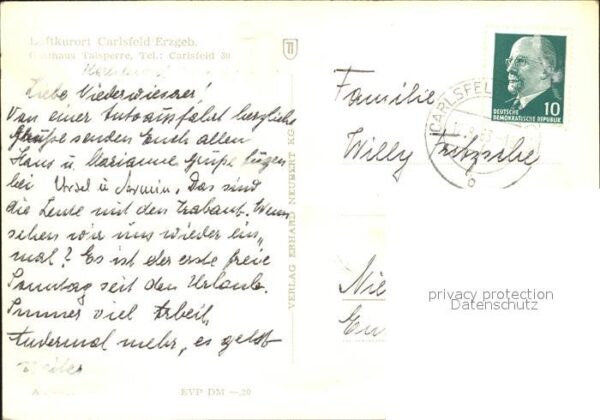 Luftkurort Carlsfeld Erzgeb.
Gasthaus Talsperre, Tel.: Carlsfeld 30
Liebe Niederwieser!
Von einer Autoausfahrt herzliche
Grüße senden Euch allen
Hans u. Marianne Grüße fügen
bei Ursel u. Armin. Das sind
die Leute mit den Trabant. Wann
sehen wir uns wieder ein-
mal? Es ist der erste freie
Sonntag seit den Urlaub.
Immer viel Arbeit,
Andermal mehr, es geht
weiter
EVP DM —,20
VERLAG ERHARD NEUBERT KG
Familie
Willy Fritzsche
Nie
CARLSFEL
10
DEUTSCHE
DEMOKRATISCHE REPUBLIK
privacy protection
Datenschutz